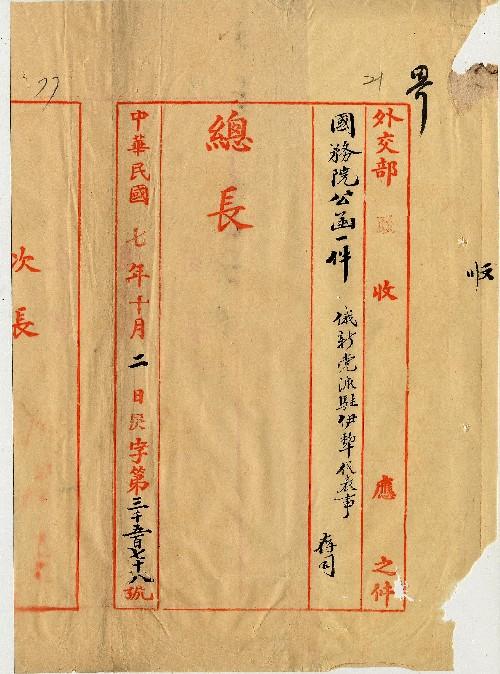 收
界
21
外交部收應之件
國務院公函一件 俄新黨派駐伊犂代表事 存司
總長
中華民國七年十月二日 字第三千五百七十八號
77
次長